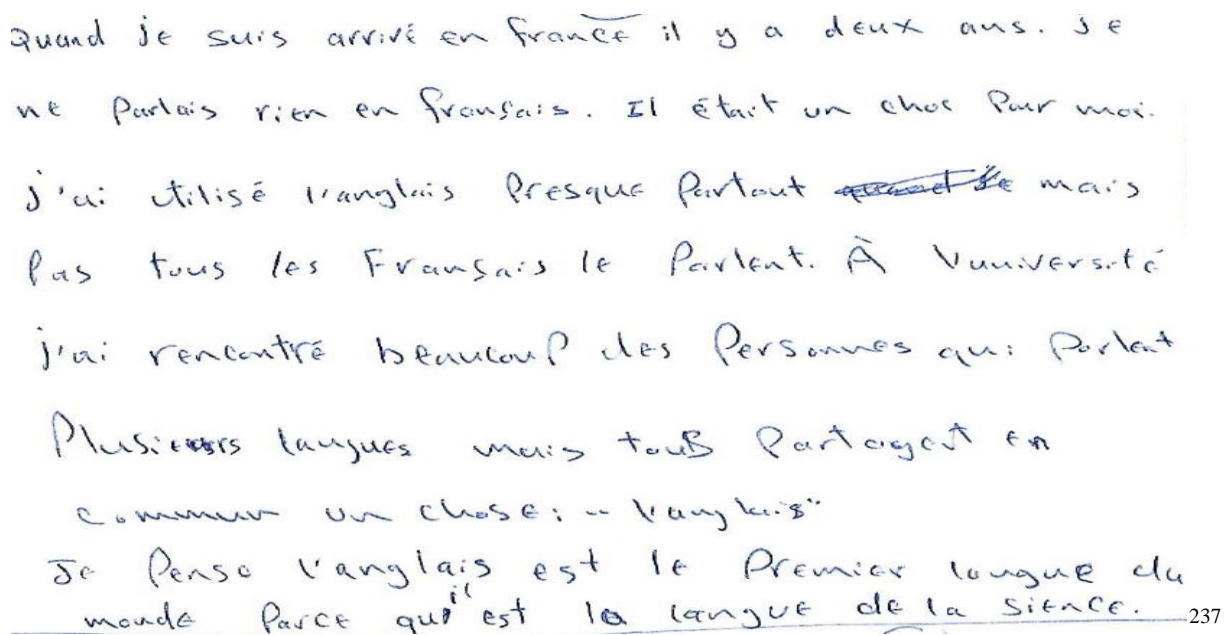 Quand je suis arrivé en france il y a deux ans. Je
ne Parlais rien en français. Il était un choc Pour moi.
J'ai utilisé l'anglais Presque Partout mais
Pas tous les Français le Parlent. À l'université
j'ai rencontré beaucoup des Personnes qui Parlent
Plusieurs langues mais tous Partagent en
commun un chose: "l'anglais"
Je Pense l'anglais est le Premier langue du
monde Parce qu'il est la langue de la sience.
237